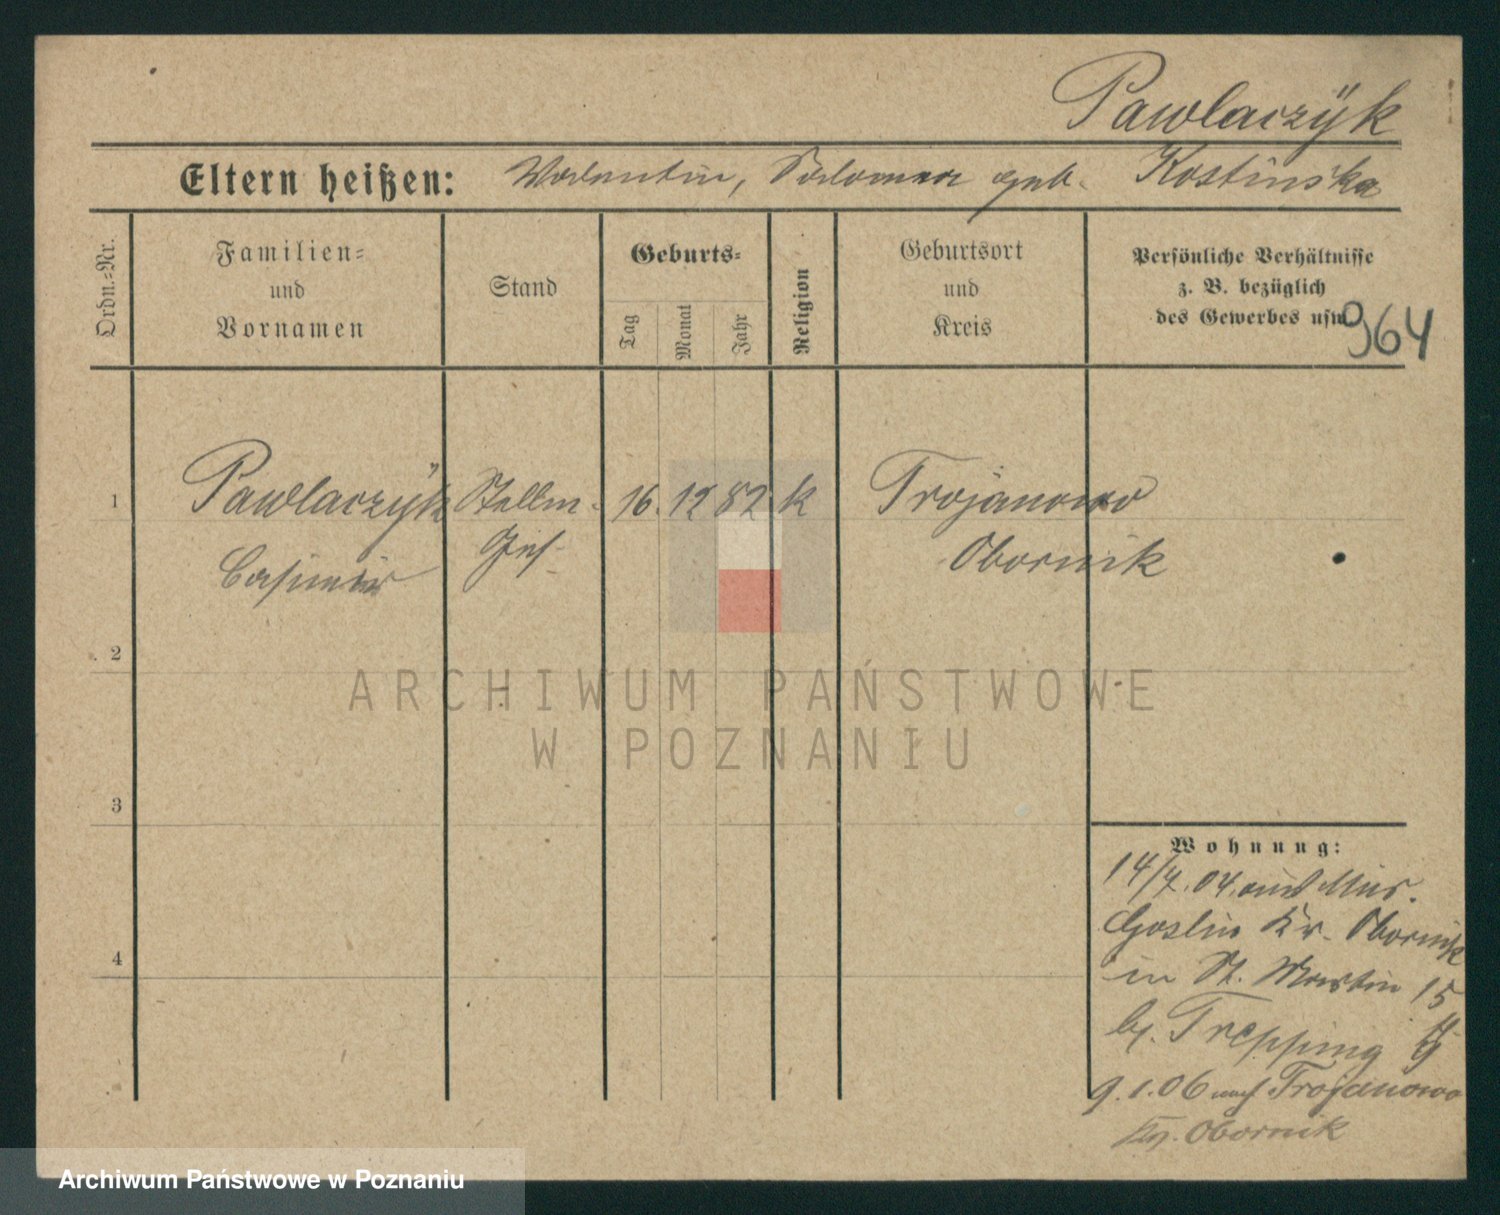 Pawlaczÿk
Eltern heißen: Valentin, Salomea geb. Kostinska
Ordn.-Nr.
Familien- und Vornamen
Stand
Geburts-
Tag
Monat
Jahr
Religion
Geburtsort und Kreis
Persönliche Verhältnisse
z. B. bezüglich
des Gewerbes usw.
964
1 Pawlaczÿk Stellm- 16. 12 82 k Trojanowo
Casimir Ges. Obornik
2
3
4
Wohnung:
14/7. 04. aus Mur.
Goslin Kr. Obornik
in St. Martin 15
b. Trepping
9.1.06 nach Trojanowo
Obornik
ARCHIWUM PAŃSTWOWE
W POZNANIU
Archiwum Państwowe w Poznaniu